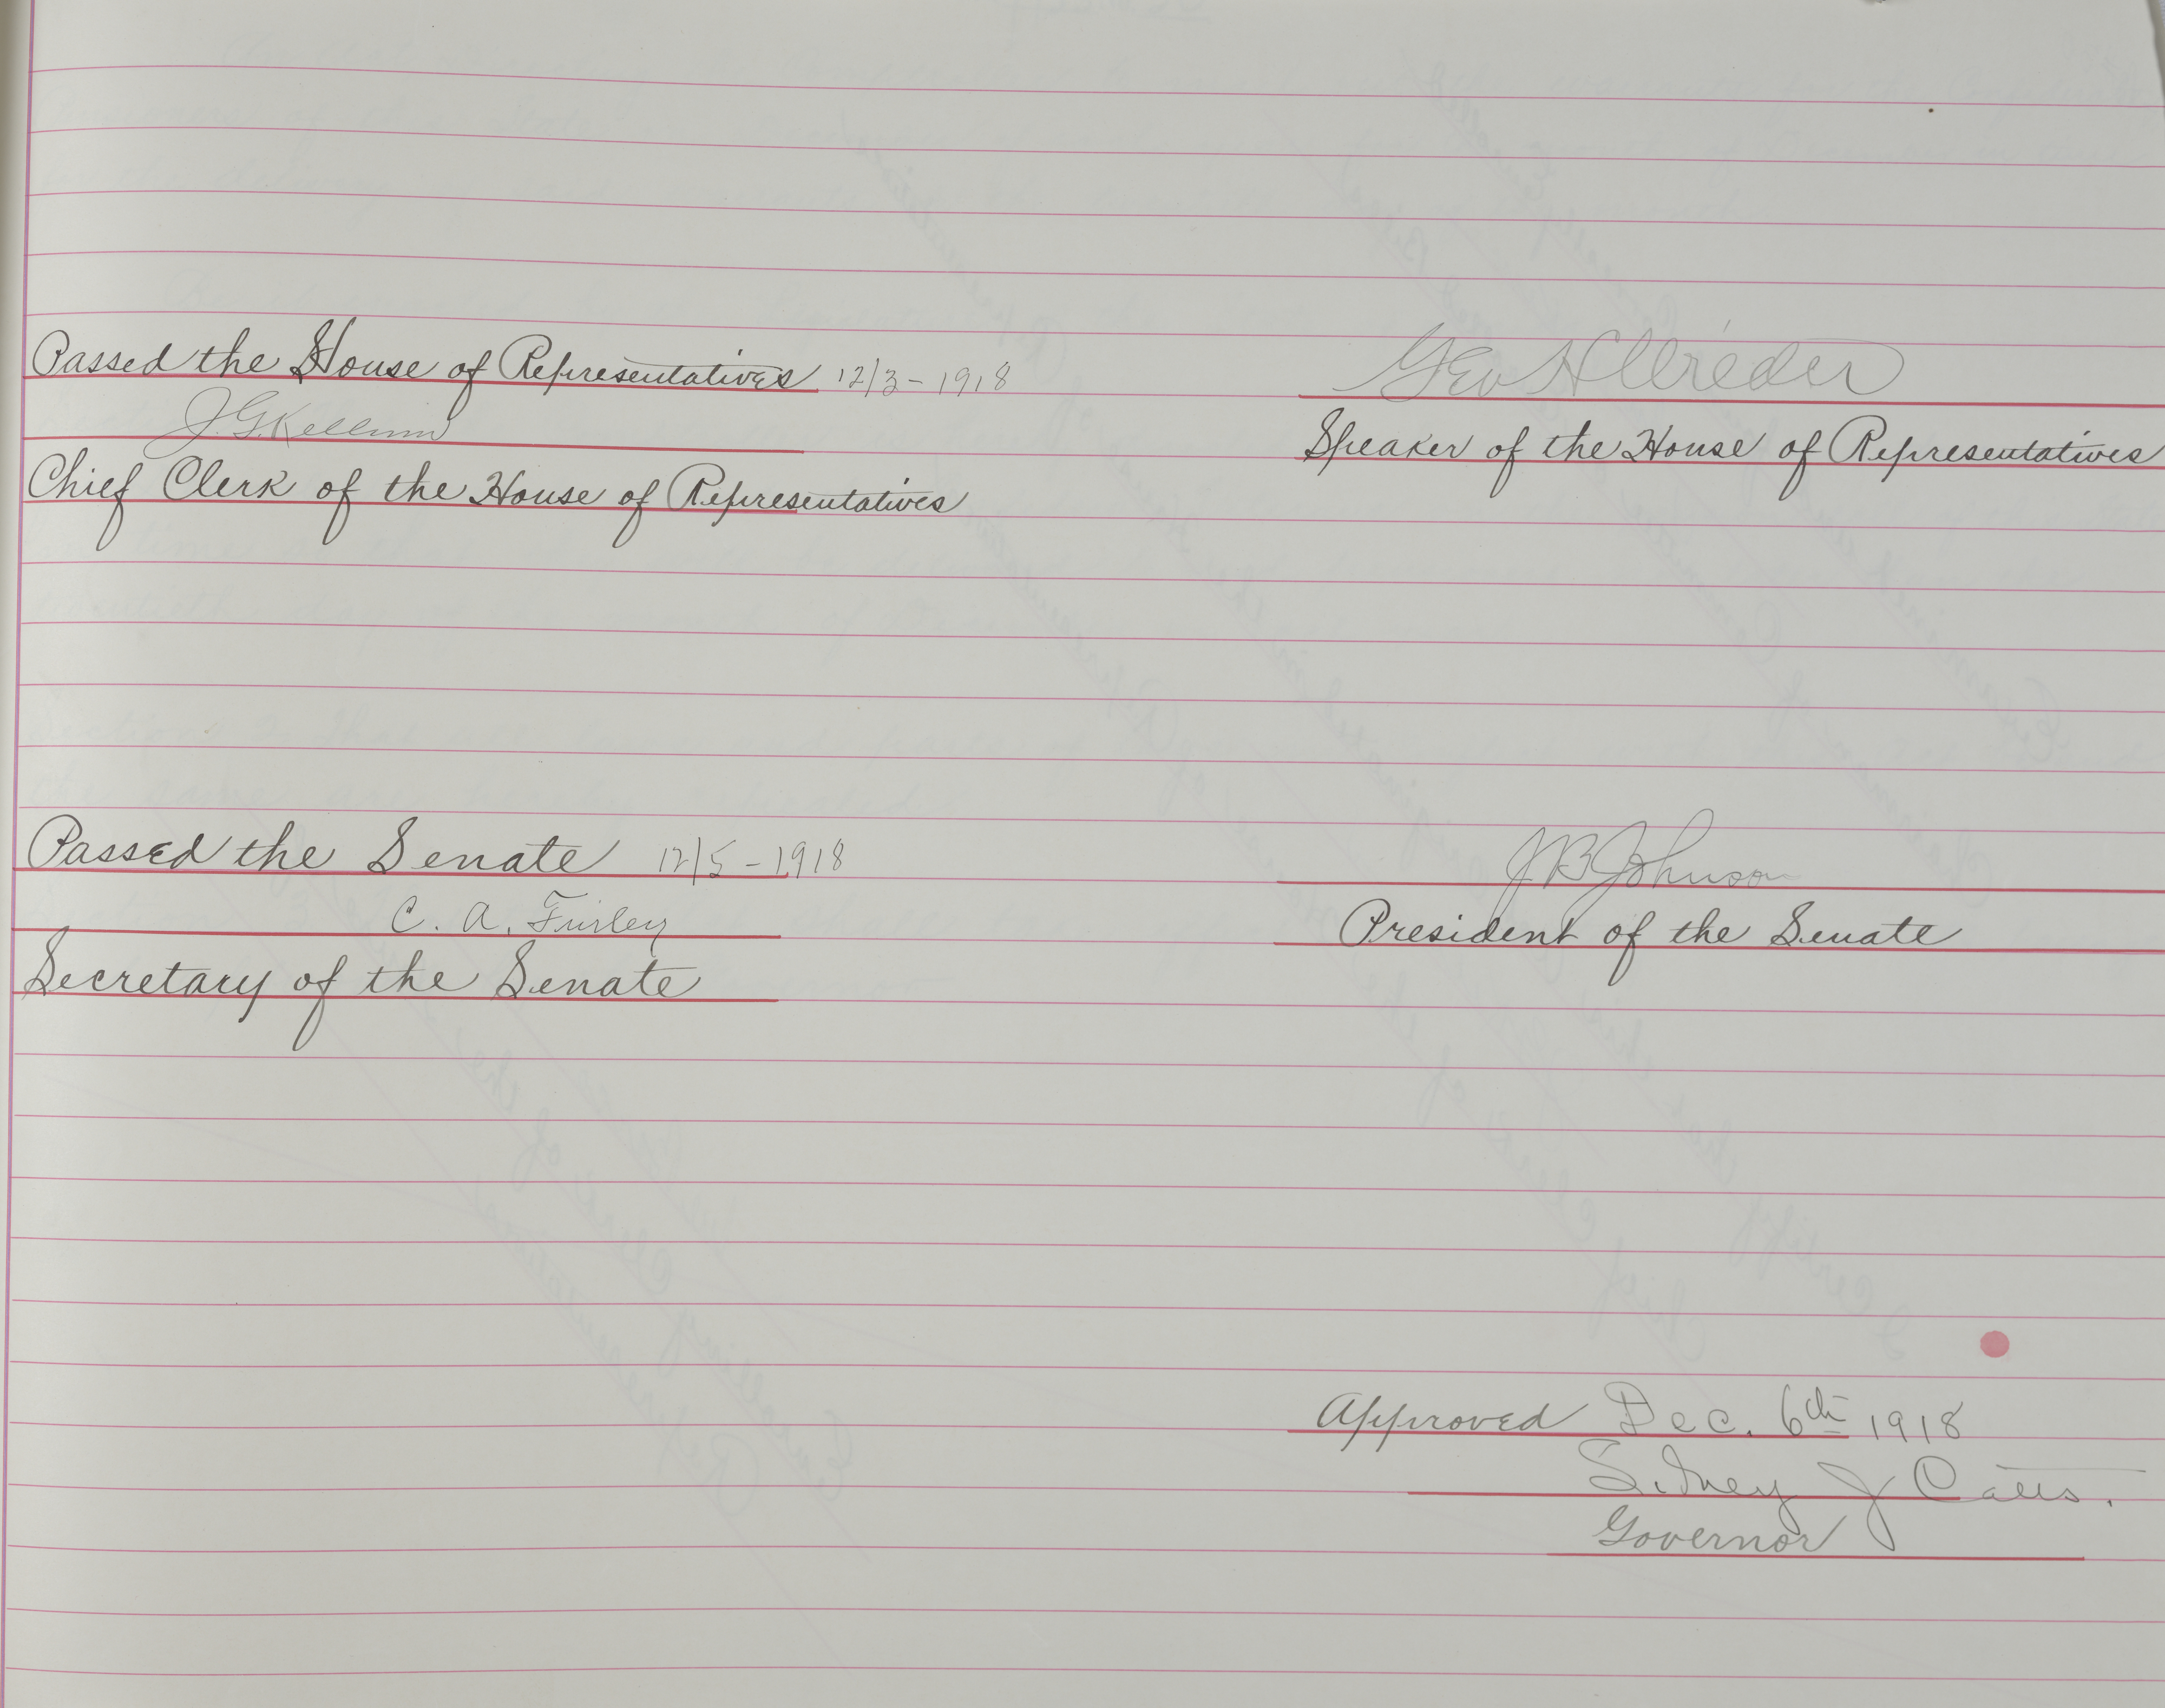 Passed the House of Representatives 12/3-1918
J. G. Kellum
Chief Clerk of the House of Representatives
Geo H Wilder
Speaker of the House of Representatives
Passed the Senate 12/5-1918
C. A. Finley
Secretary of the Senate
J B Johnson
President of the Senate
Approved Dec. 6th 1918
Sidney J Catts.
Governor